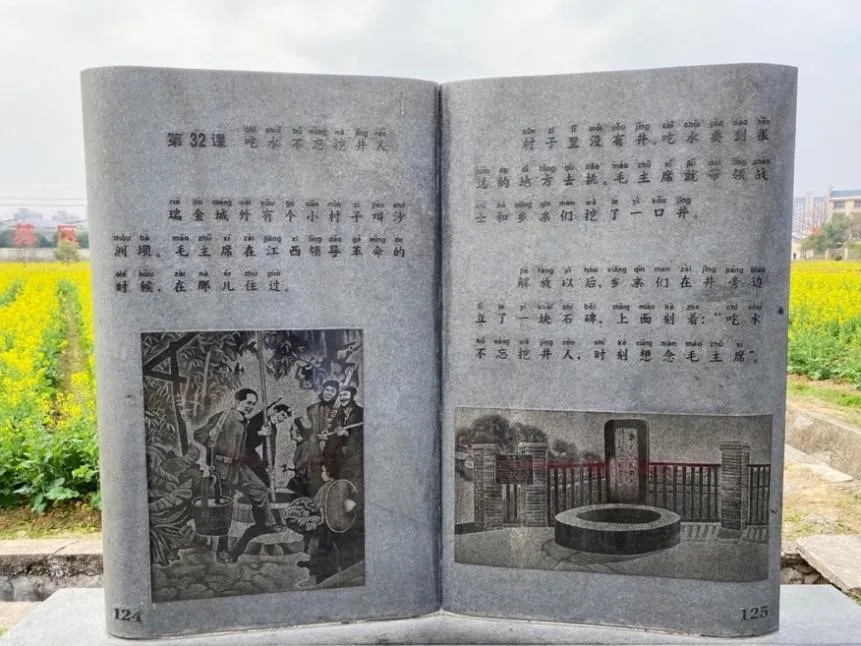 chī shuǐ bú wàng wā jǐng rén
第32课 吃水不忘挖井人
ruì jīn chéng wài yǒu gè xiǎo cūn zi jiào shā
瑞金城外有个小村子叫沙
zhōu bà máo zhǔ xí zài jiāng xī lǐng dǎo gé mìng de
洲坝。毛主席在江西领导革命的
shí hòu zài nà ér zhù guò
时候,在那儿住过。
124
cūn zi lǐ méi yǒu jǐng chī shuǐ yào dào hěn
村子里没有井。吃水要到很
yuǎn de dì fāng qù tiāo máo zhǔ xí jiù dài lǐng zhàn
远的地方去挑。毛主席就带领战
shì hé xiāng qīn men wā le yì kǒu jǐng
士和乡亲们挖了一口井。
jiě fàng yǐ hòu xiāng qīn men zài jǐng páng biān
解放以后,乡亲们在井旁边
lì le yí kuài shí bēi shàng miàn kè zhe chī shuǐ
立了一块石碑,上面刻着:“吃水
bú wàng wā jǐng rén shí kè xiǎng niàn máo zhǔ xí
不忘挖井人,时刻想念毛主席”。
125